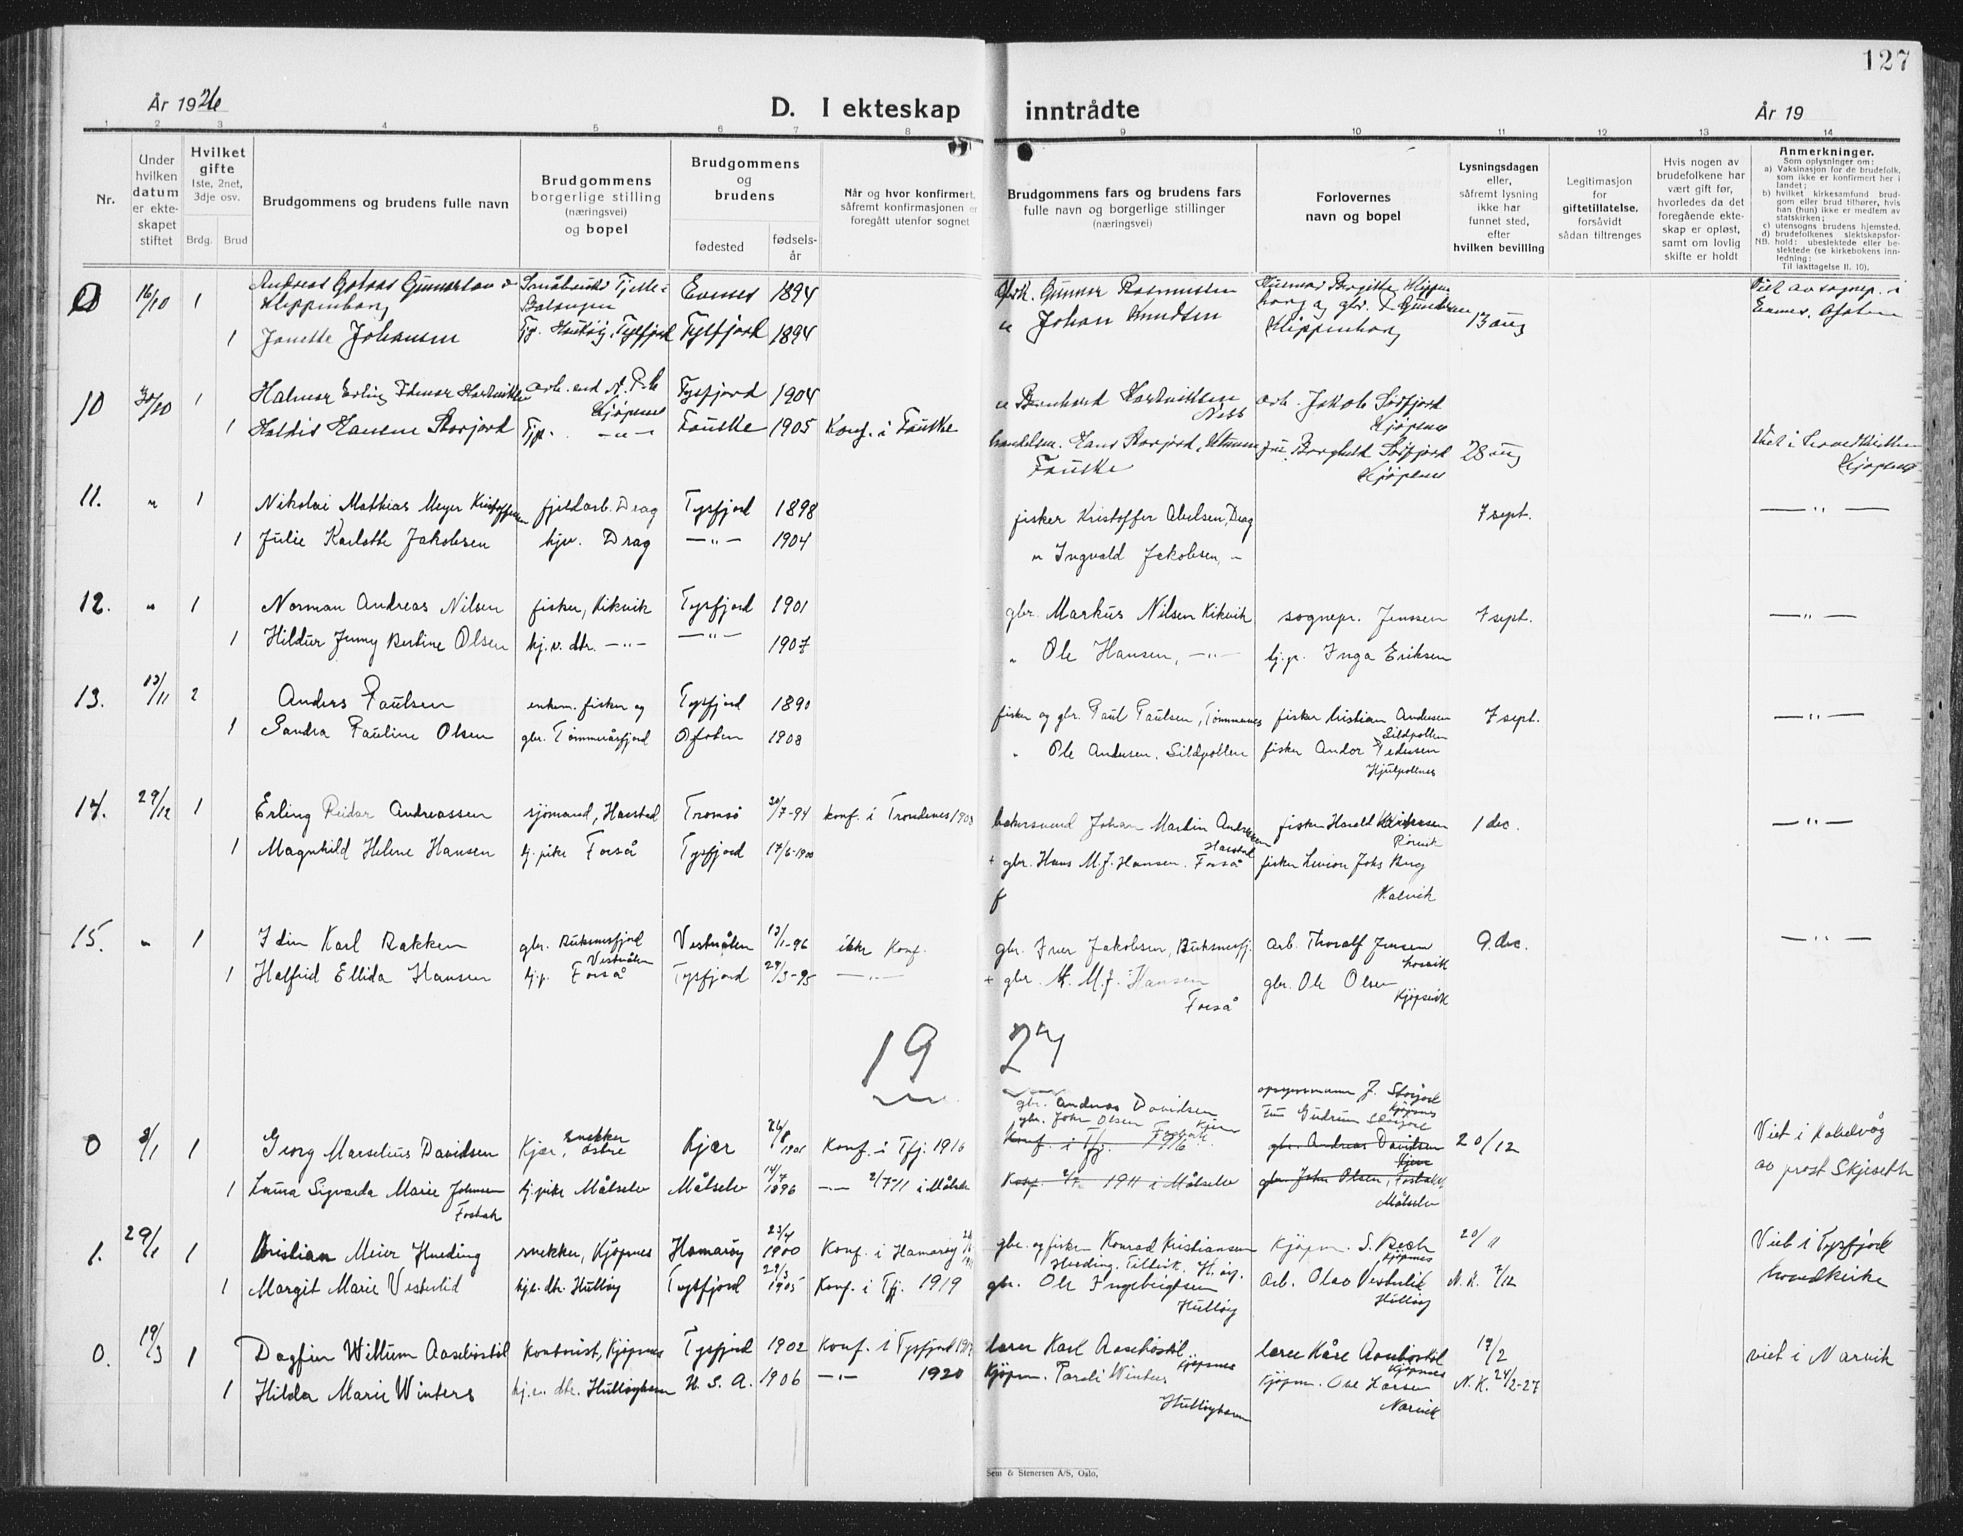 127
År 1926
D. I ekteskap inntrådte
År 19
1 2 3 4 5 6 7 8 9 10 11 12 13 14
Nr.
Under hvilken datum er ekteskapet stiftet
Hvilket gifte
1ste, 2net, 3dje osv.
Brdg. Brud
Brudgommens og brudens fulle navn
Brudgommens borgerlige stilling (næringsvei) og bopel
Brudgommens og brudens
fødested
fødselsår
Når og hvor konfirmert, såfremt konfirmasjonen er foregått utenfor sognet
Brudgommens fars og brudens fars fulle navn og borgerlige stillinger (næringsvei)
Forlovernes navn og bopel
Lysningsdagen eller, såfremt lysning ikke har funnet sted, efter hvilken bevilling
Legitimasjon for giftetillatelse, forsåvidt sådan tiltrenges
Hvis nogen av brudefolkene har vært gift før, hvorledes da det foregående ekteskap er opløst, samt om lovlig skifte er holdt
Anmerkninger.
Som oplysninger om:
a) Vaksinasjon for de brudefolk, som ikke er konfirmert her i landet;
b) hvilket kirkesamfund brudgom eller brud tilhører, hvis han (hun) ikke er medlem av statskirken;
c) utensogns brudens hjemsted.
d) brudefolkenes slektskapsforhold: ubeslektede eller beslektede (se kirkebokens innledning:
NB. Til iakttagelse II. 10).
0 16/10 1 Andreas Gunnerson Klippenborg Evenes 1894 Gbrk. Gunnar Rasmussen Klippenborg 13 aug
1 Janette Johansen Tysfjord 1894 " Johan Knudsen
10 30/10 1 Halmar Erling Hartviksen arb. Kjøpsnes Tysfjord 1904 " Bernhard Hartviksen Ness arb. Jakob Sørfjord Kjøpsnes
1 Haldis Hansen Storjord Tjp. —"— Fauske 1905 Konf. i Fauske Hans Storjord, Fauske fru Borghild Sørfjord Kjøpsnes 28 aug Viet i hovedkirken Kjøpsnes
11. " 1 Nikolai Mathias Meyer Kristoffersen fjeldarb. Drag Tysfjord 1898 fisker Kristoffer Abelsen, Drag 7 sept. —"—
1 Julie Karlotte Jakobsen hjv. Drag —"— 1904 " Ingvald Jakobsen, "
12. " 1 Norman Andreas Nilsen fisker, Kikvik Tysfjord 1901 gbr. Markus Nilsen Kikvik sognepr. Jenssen 7 sept. —"—
1 Hildur Jenny Bertine Olsen hj.v. dtr. —"— —"— 1907 " Ole Hansen, —"— hj.p. Inga Eriksen
13. 13/11 2 Anders Paulsen enkem. fisker og Tysfjord 1890 fisker og gbr. Paul Paulsen, Tømmernes fisker Kristian Andersen Sildpollen 7 sept. —"—
1 Sandra Pauline Olsen gbr. Tømmeråsfjord Ofoten 1908 " Ole Andersen, Sildpollen fisker Andor Pedersen Hjulpollnes
14. 29/12 1 Erling Reidar Andreassen sjömand, Harstad Tromsö 20/7-94 konf. i Trondenes 1908 bakersvend Johan Martin Andreassen Harstad fisker Harald Rörvik 1 dec. —"—
1 Magnhild Helene Hansen hj. pike Forså Tysfjord 17/6-1900 + gbr. Hans M. J. Hansen. Forså fisker Johs Berg Kalvik
15. " 1 Idin Karl Bakken gbr. Buksnesfjord Vesterålen Vesterålen 13/1-96 ikke konf. gbr. Iver Jakobsen, Buksnesfj. arb. Thoralf Jensen 9. dec. —"—
1 Halfrid Ellida Hansen hj.p. Forså Tysfjord 29/3-95 —"— + gbr. H. M. J. Hansen Forså gbr. Ole Olsen Kjøpsvik
19 27
0 8/1 1 Georg Marselius Davidsen snekker Kjær, østre Kjær 26/8 1901 Konf. i Tfj. 1916 gbr. Andreas Davidsen Kjær opsynsmann J. Storjord Kjøpsnes 20/12 Viet i Kabelvåg av prost Skjeseth
1 Laura Sigvarda Marie Johnsen Fosbak hj. pike Målselv Målselv 14/7 1896 —"— 2/7 11 i Målselv gbr. John Olsen Fosbak Fru Gudrun Storjord
Konf. i Tfj. 1916 gbr. Andreas Davidsen Kjær
Konf. 2/7 1911 i Målselv gbr. John Olsen, Fosbak, Målselv
1. 29/1 1 Kristian Meier Hveding snekker, Kjøpsnes Hamarøy 23/4 1900 Konf. i Hamarøy gbr. og fisker Konrad Kristiansen Hveding, Tiltvik. H.øy. Kjøpm. S. Bech Kjøpsnes 20/11 Viet i Tysfjord hovedkirke
1 Margit Marie Vesterlid hje. dtr. Hulløy Tysfjord 29/3 1905 Konf. i Tfj. 1919 gbr. Ole Ingebrigtsen Hulløy Arb. Olav Vesterlid Hulløy N. K. 7/12
0. 19/3 1 Dagfin Willum Aasebøstøl Kontorist, Kjøpsnes Tysfjord 1902 Konf. i Tysfjord 1917 lærer Karl Aasebøstøl Kjøpsnes lærer Kåre Aasebøstøl Kjøpsnes 19/2 viet i Narvik
1 Hilda Marie Winters hj.v. dtr. Hulløyhavn U. S. A. 1906 —"— 1920 Kjøpm. Parali Winters Hulløyhavn Kjøpm. Ole Larsen Narvik N. K. 24/2-27
Sem & Stenersen A/S, Oslo.